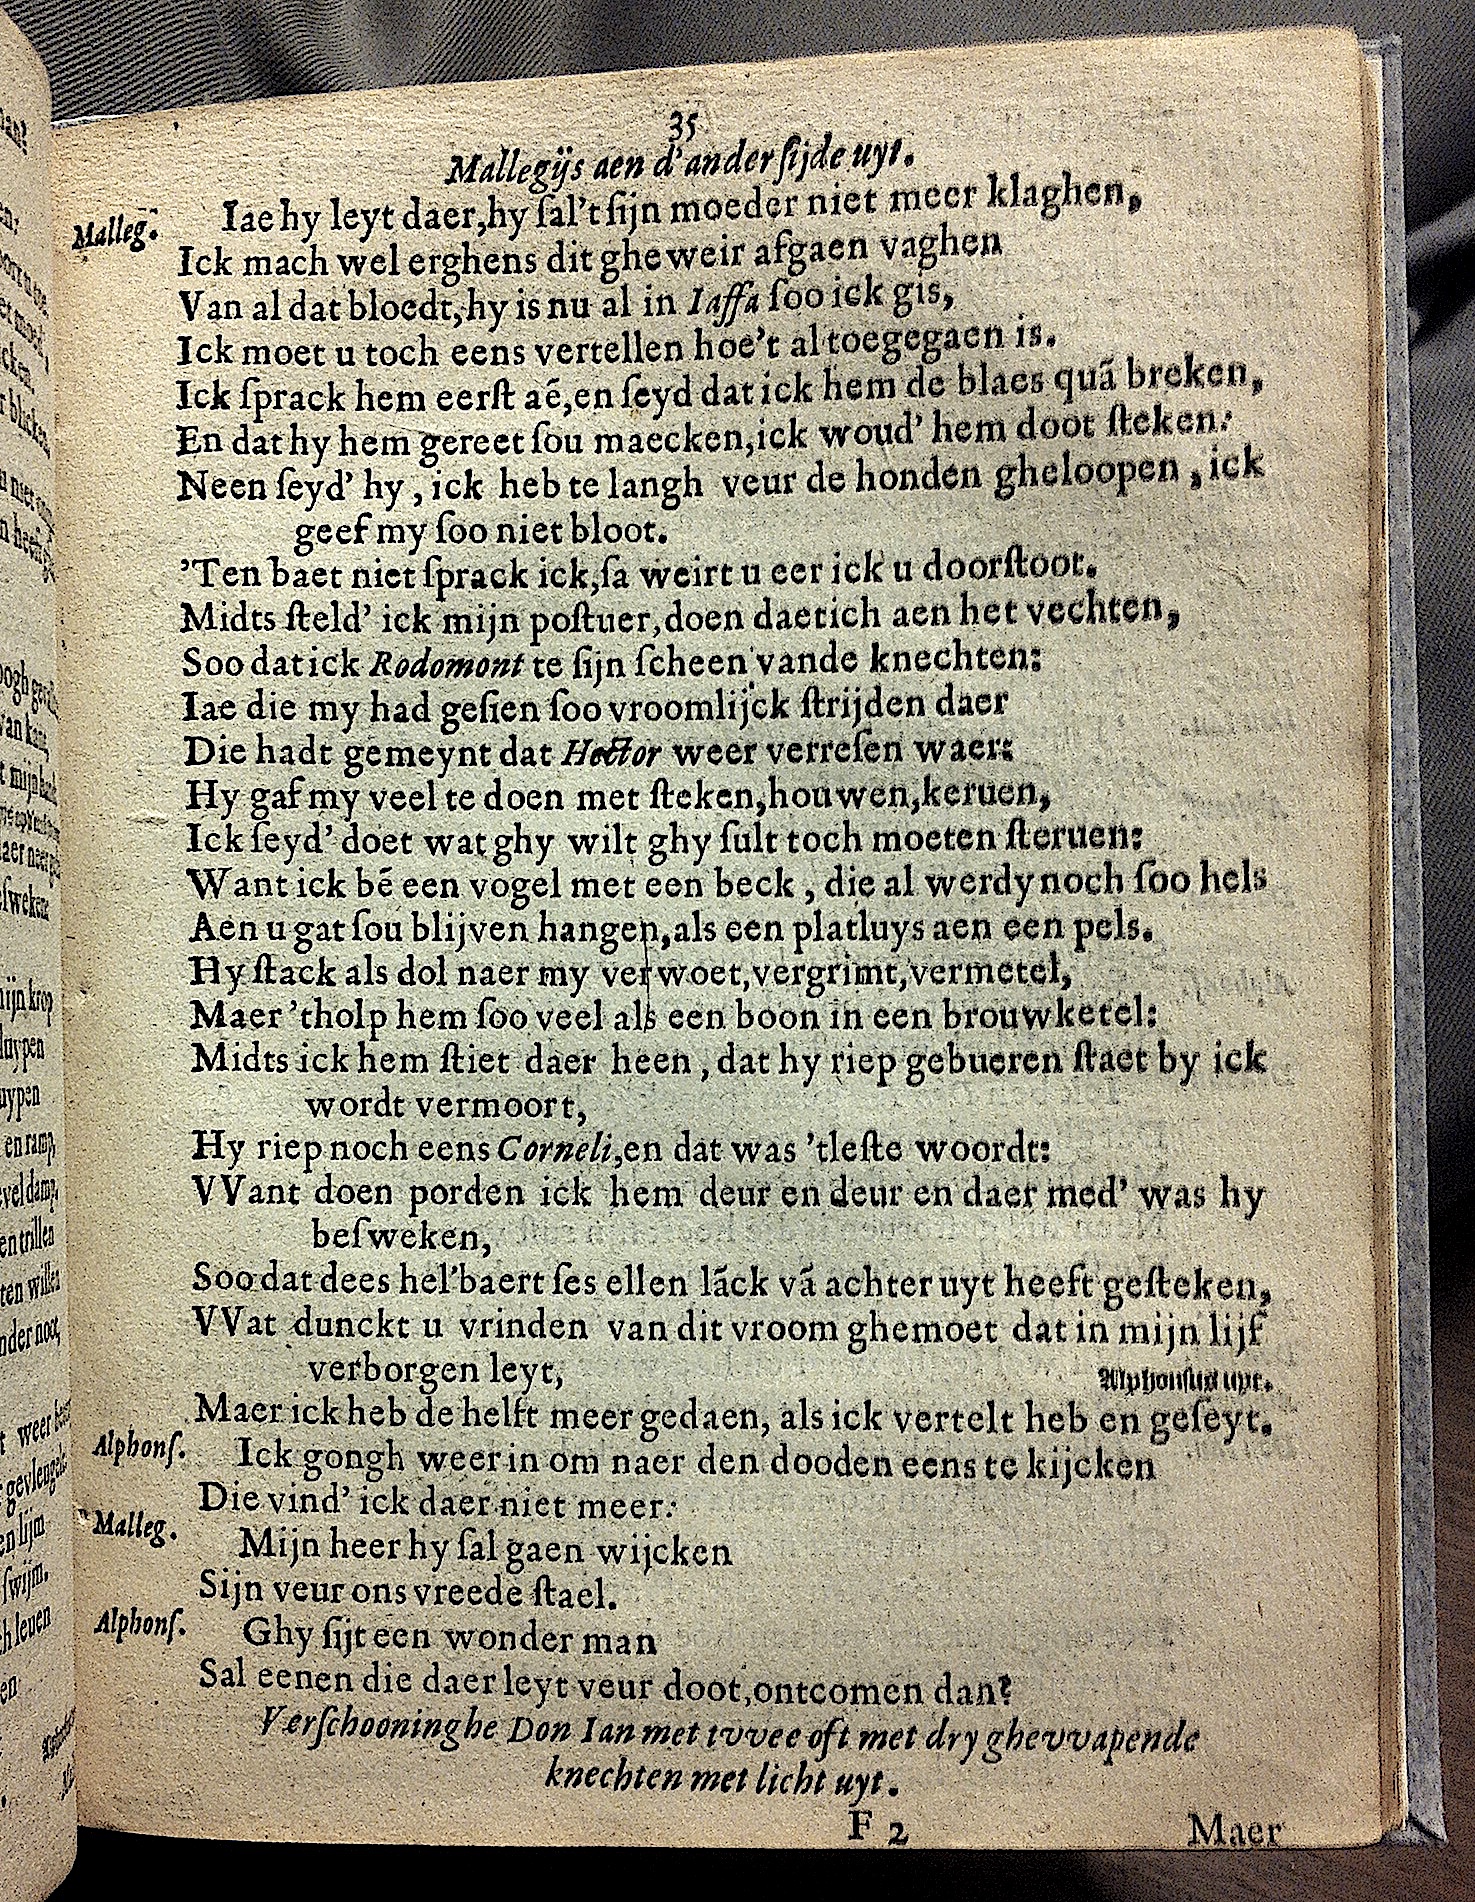 35
Mallegijs aen d'ander ſijde uyt.
Malleg. Iae hy leyt daer, hy ſal't ſijn moeder niet meer klaghen,
Ick mach wel erghens dit gheweir afgaen vaghen
Van al dat bloedt, hy is nu al in Iaffa ſoo ick gis,
Ick moet u toch eens vertellen hoe't al toegegaen is.
Ick ſprack hem eerſt aẽ, en ſeyd dat ick hem de blaes quã breken,
En dat hy hem gereet ſou maecken, ick woud' hem doot ſteken:
Neen ſeyd' hy, ick heb te langh veur de honden gheloopen, ick
geef my ſoo niet bloot.
'Ten baet niet ſprack ick, ſa weirt u eer ick u doorſtoot.
Midts ſteld' ick mijn poſtuer, doen daetich aen het vechten,
Soo dat ick Rodomont te ſijn ſcheen vande knechten:
Iae die my had geſien ſoo vroomlijck ſtrijden daer
Die hadt gemeynt dat Hector weer verreſen waer:
Hy gaf my veel te doen met ſteken, houwen, keruen,
Ick ſeyd' doet wat ghy wilt ghy ſult toch moeten ſteruen:
Want ick bẽ een vogel met een beck, die al werdy noch ſoo hels
Aen u gat ſou blijven hangen, als een platluys aen een pels.
Hy ſtack als dol naer my verwoet, vergrimt, vermetel,
Maer 'tholp hem ſoo veel als een boon in een brouwketel:
Midts ick hem ſtiet daer heen, dat hy riep gebueren ſtaet by ick
wordt vermoort,
Hy riep noch eens Corneli, en dat was 'tleſte woordt:
VVant doen porden ick hem deur en deur en daer med' was hy
beſweken,
Soo dat dees hel'baert ſes ellen lãck vã achter uyt heeft geſteken,
VVat dunckt u vrinden van dit vroom ghemoet dat in mijn lijf
verborgen leyt,
Alphonſus uyt.
Maer ick heb de helft meer gedaen, als ick vertelt heb en geſeyt.
Alphonſ. Ick gongh weer in om naer den dooden eens te kijcken
Die vind' ick daer niet meer:
Malleg. Mijn heer hy ſal gaen wijcken
Sijn veur ons vreede ſtael.
Alphonſ. Ghy ſijt een wonder man
Sal eenen die daer leyt veur doot, ontcomen dan?
Verſchooninghe Don Ian met tvvee oft met dry ghevvapende
knechten met licht uyt.
F 2 Maer